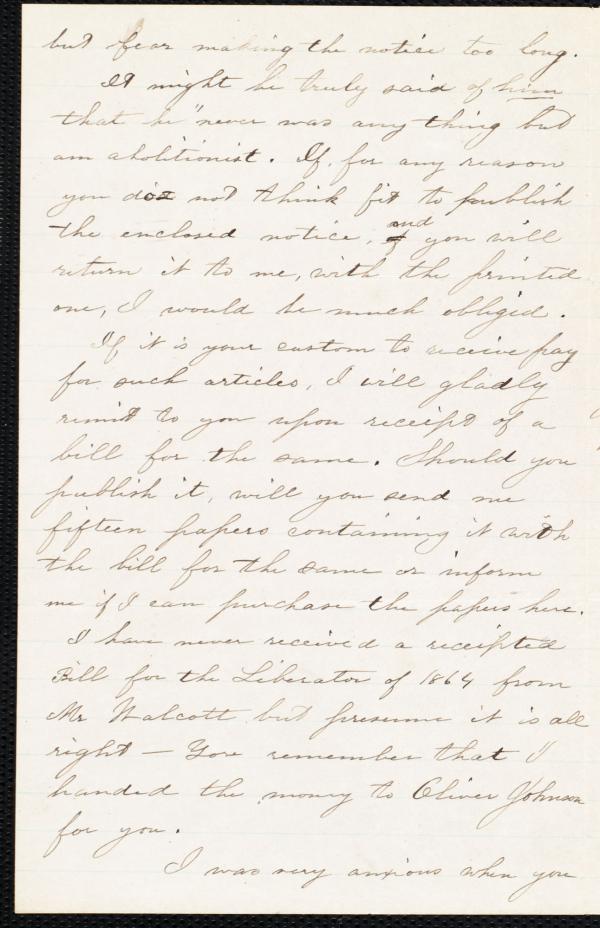 but fear making the notice too long.
It might be truly said of him
that he "never was any thing but
an abolitionist. If, for any reason
you do not think fit to publish
the enclosed notice, and you will
return it to me, with the printed
one, I would be much obliged.
If it is your custom to receive pay
for such articles, I will gladly
remit to you upon receipt of a
bill for the same. Should you
publish it, will you send me
fifteen papers containing it with
the bill for the same or inform
me if I can purchase the papers here.
I have never received a receipted
Bill for the Liberator of 1864 from
Mr Walcott but presume it is all
right — You remember that I
handed the money to Oliver Johnson
for you.
I was very anxious when you